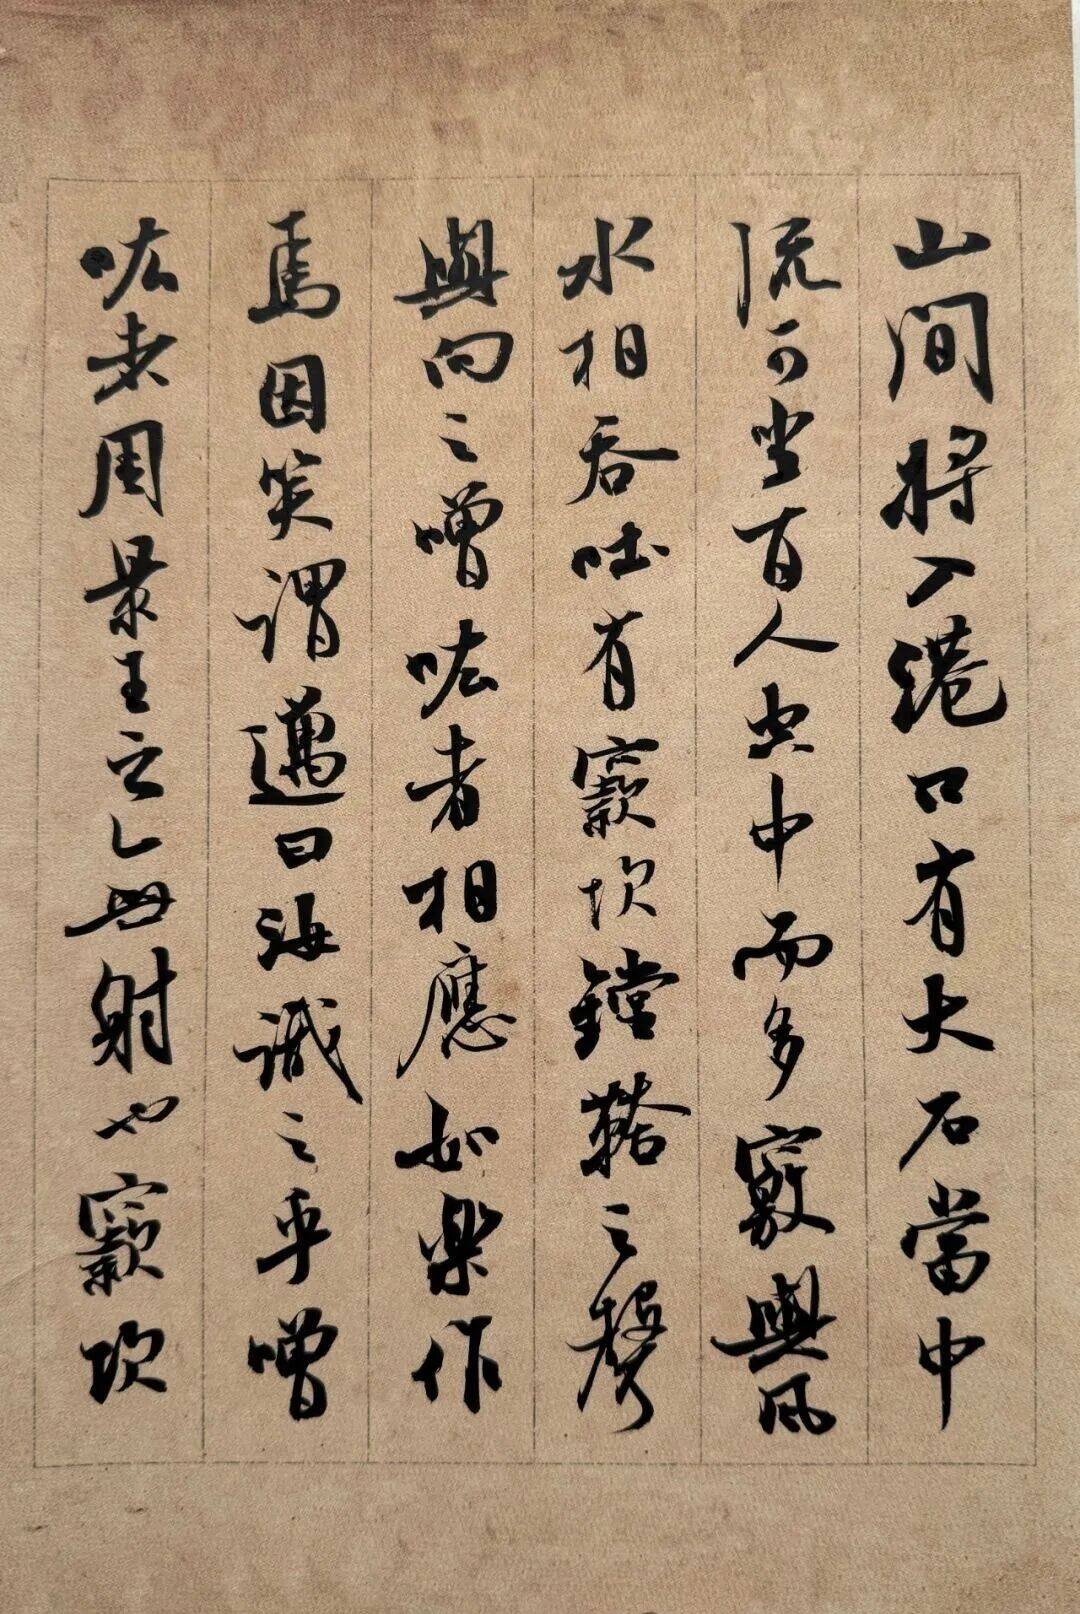 山間將入港口有大石當中
流可坐百人空中而多竅與風
水相吞吐有窾坎鏜鞳之聲
與向之噌吰者相應如樂作
焉因笑謂邁曰汝識之乎噌
吰者周景王之無射也窾坎